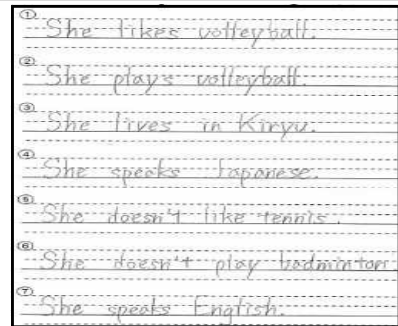 ① She likes volleyball.
② She plays volleyball.
③ She lives in Kiryu.
④ She speaks Japanese.
⑤ She doesn't like tennis.
⑥ She doesn't play badminton
⑦ She speaks English.